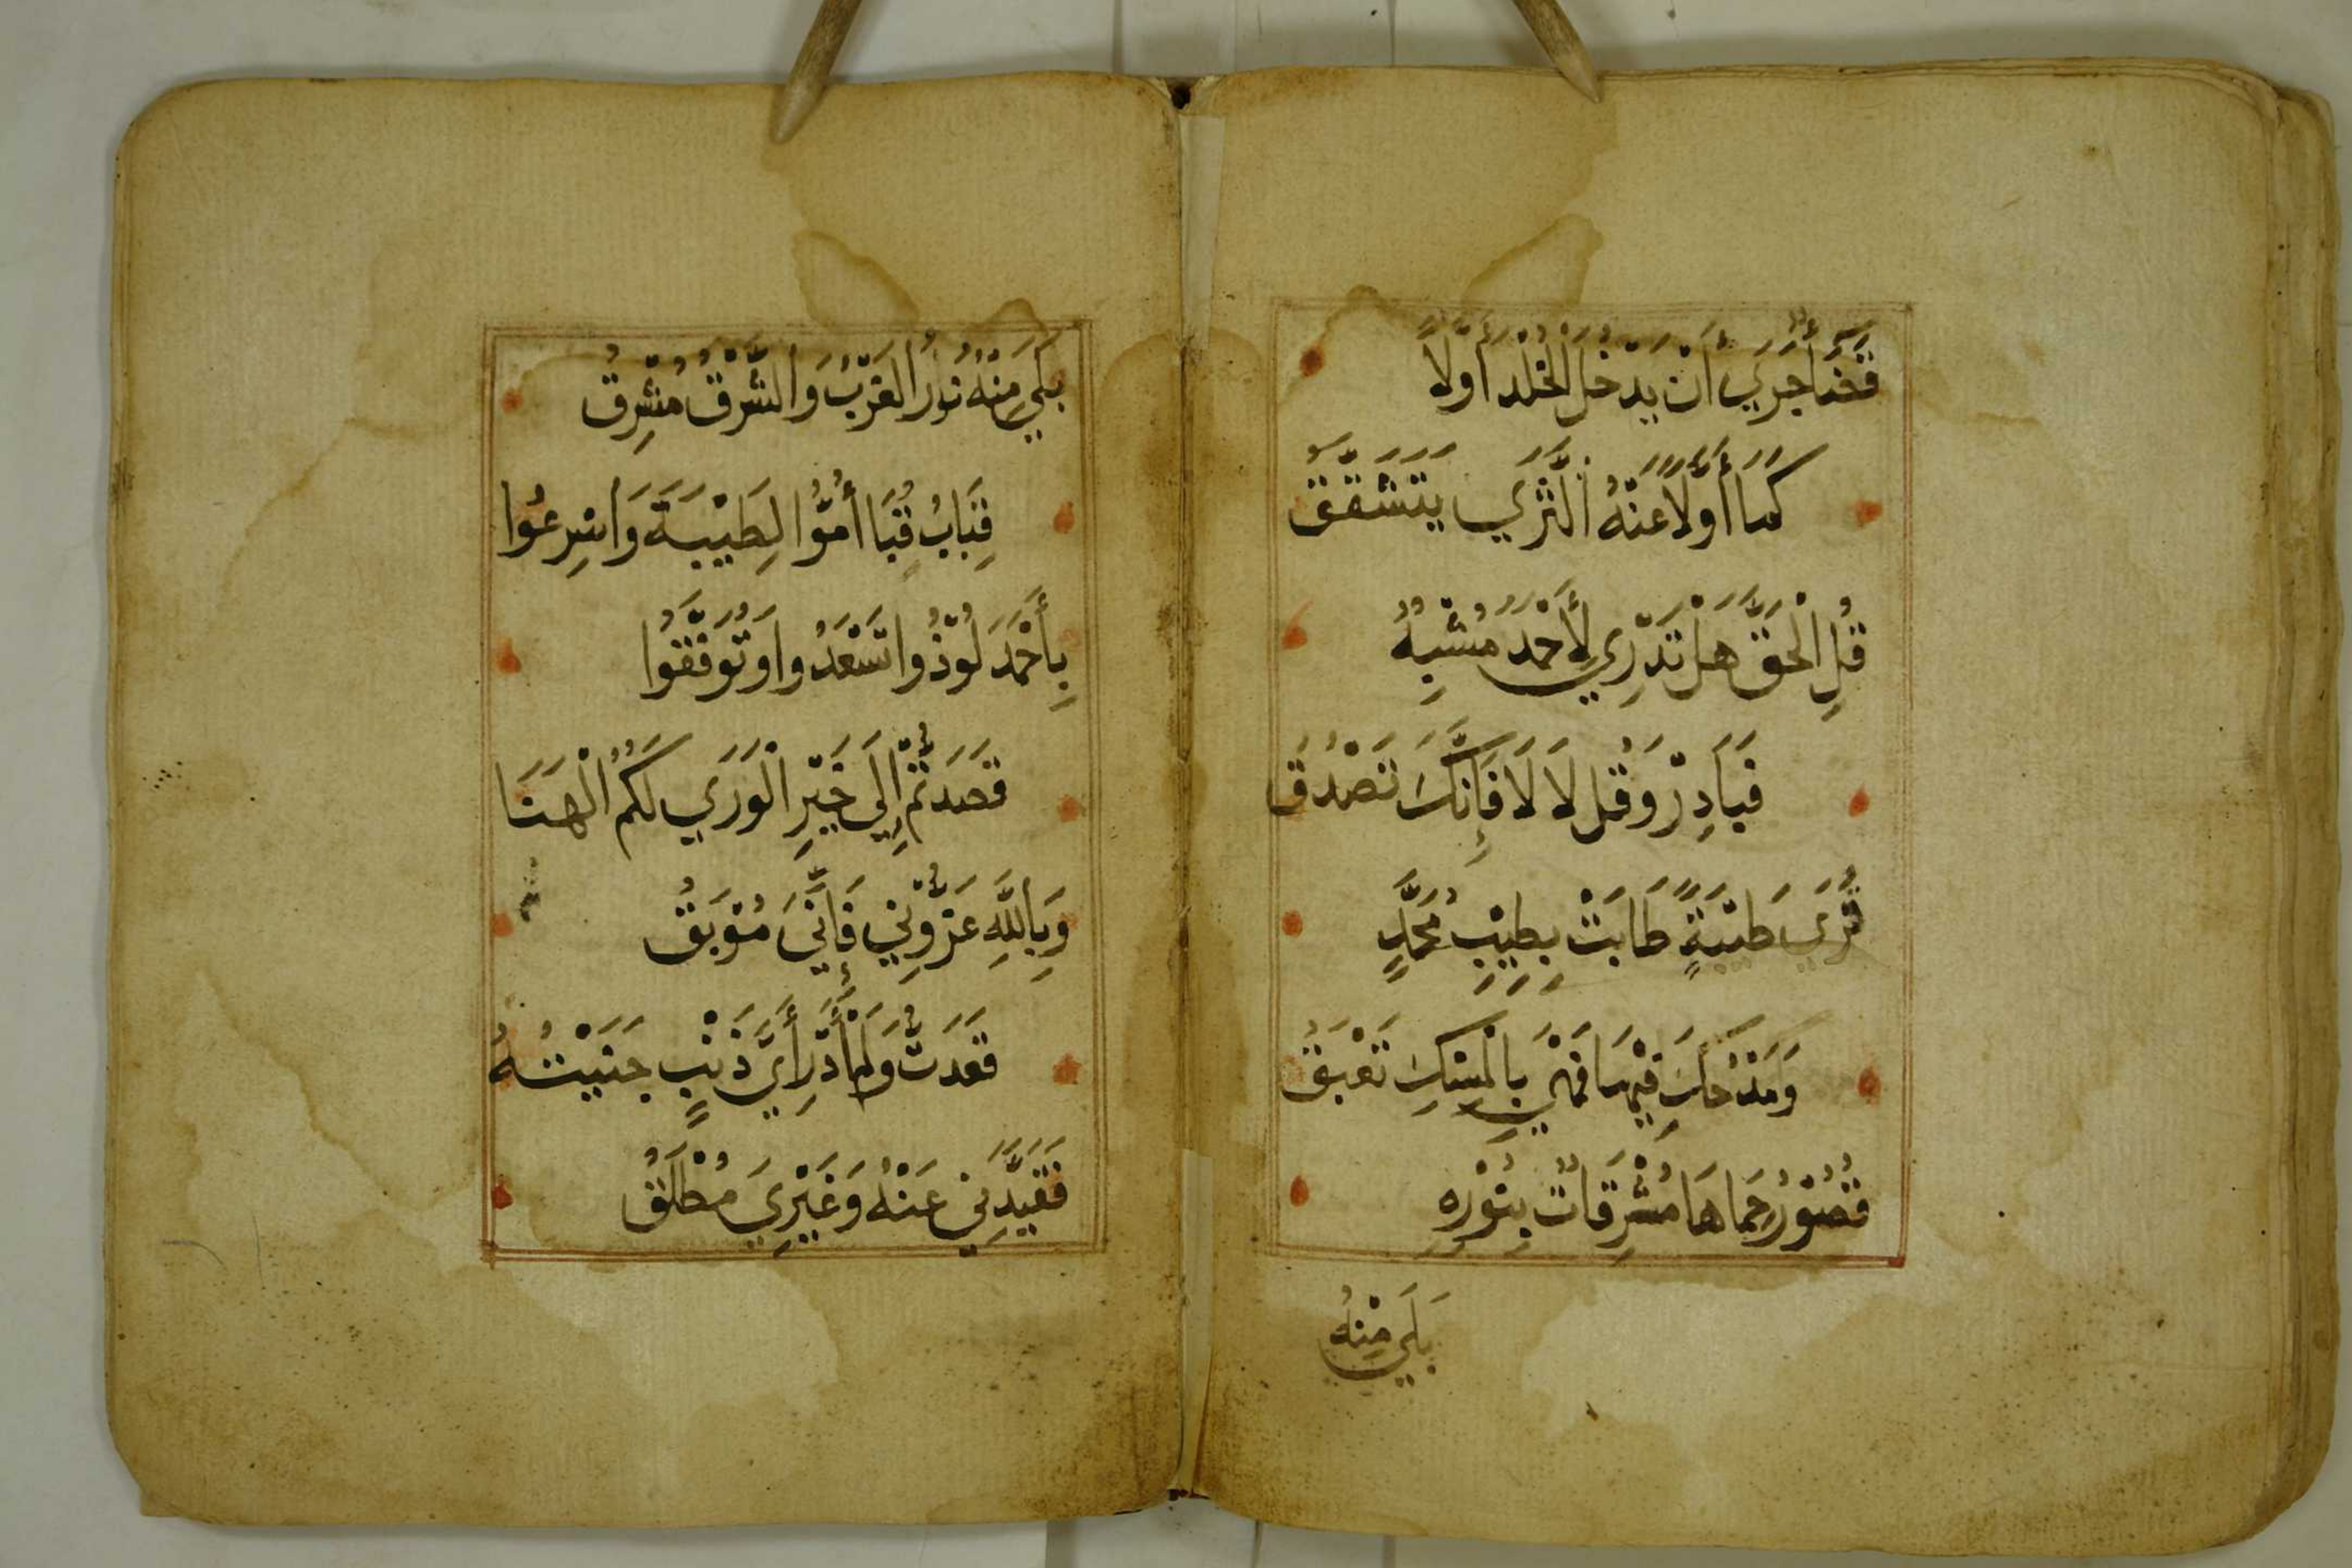 قَضَاءً جَرَي أَنْ يَدْخُلَ الْخُلْدَ أَوَّلاً
كَمَا أَوَّلاً عَنْهُ الثَّرَي يَتَشَقَّقُ
قُلِ الْحَقَّ هَلْ تَدْرِي لِأَحْمَدَ مُشْبِهٌ
فَبَادِرْ وَقُل لَا لَا فَإِنَّكَ تَصْدُقُ
قُرَي طَيْبَةٍ طَابَتْ بِطِيْبِ مُحَمَّدٍ
وَمُذْ حَلَّ فِيْهَا فَهْيَ بِالْمِسْكِ تَعْبَقُ
قُصُوْرُ حِمَاهَا مُشْرِقَاتٌ بِنُوْرِهِ
بَلَي مِنْهُ
بَلَي مِنْهُ نُورُ الغَرْبُ وَالشَّرْقُ مُشْرِقُ
قِبَابُ قُبَا أُمُّوا لِطَيْبَةَ وَاسْرِعُوا
بِأَحْمَدَ لُوْذُوا تَسْعَدُوا وَتُوَفَّقُوا
قَصَدْتُمْ إِلَي خَيْرِ الْوَرَي لَكُمُ الْهَنَا
وَبِاللَّهِ عَزُّوْنِي فَإِنِّيَ مُوْبَقُ
قَعَدْتُ وَلَمْ أَدْرِ أَيَّ ذَنْبٍ جَنَيْتُهُ
فَقَيَّدَنِي عَنْهُ وَغَيْرِيَ مُطْلَقُ